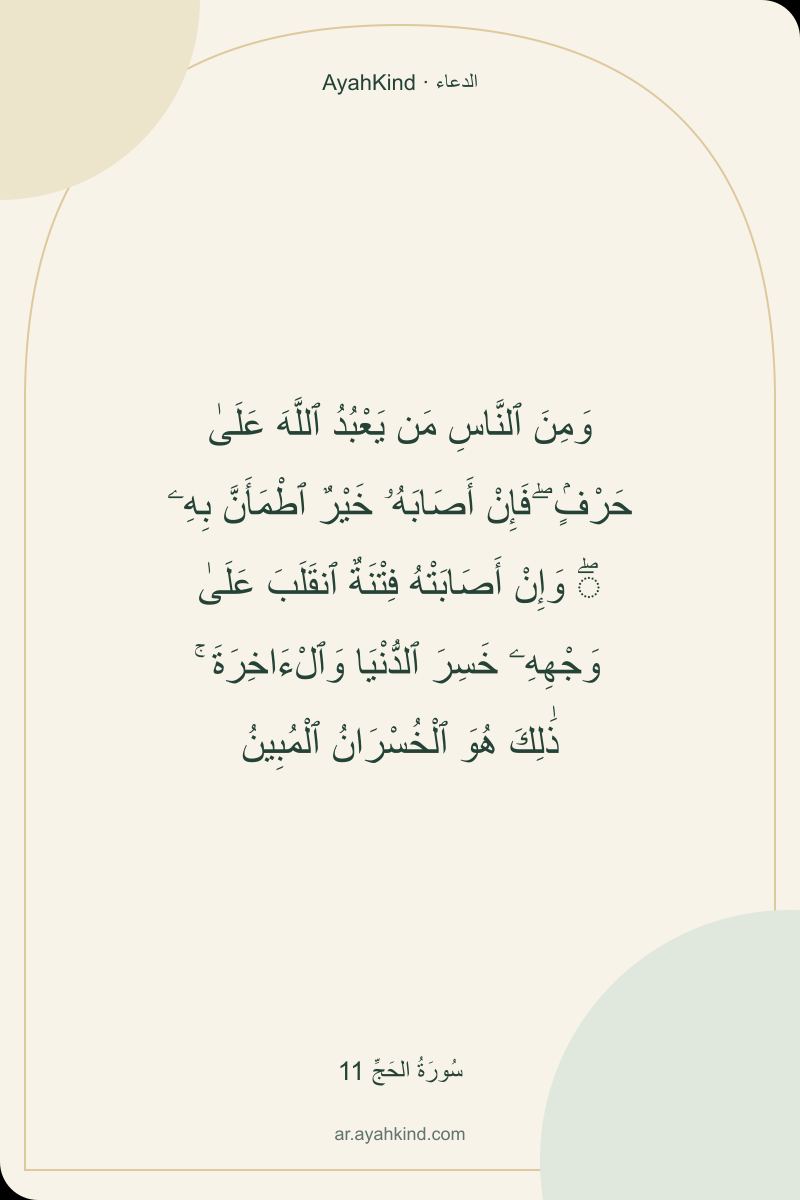 AyahKind · الدعاء
وَمِنَ ٱلنَّاسِ مَن يَعْبُدُ ٱللَّهَ عَلَىٰ
حَرْفٍۢ ۖ فَإِنْ أَصَابَهُۥ خَيْرٌ ٱطْمَأَنَّ بِهِۦ
ۖ وَإِنْ أَصَابَتْهُ فِتْنَةٌ ٱنقَلَبَ عَلَىٰ
وَجْهِهِۦ خَسِرَ ٱلدُّنْيَا وَٱلْءَاخِرَةَ ۚ
ذَٰلِكَ هُوَ ٱلْخُسْرَانُ ٱلْمُبِينُ
سُورَةُ الحَجِّ 11
ar.ayahkind.com